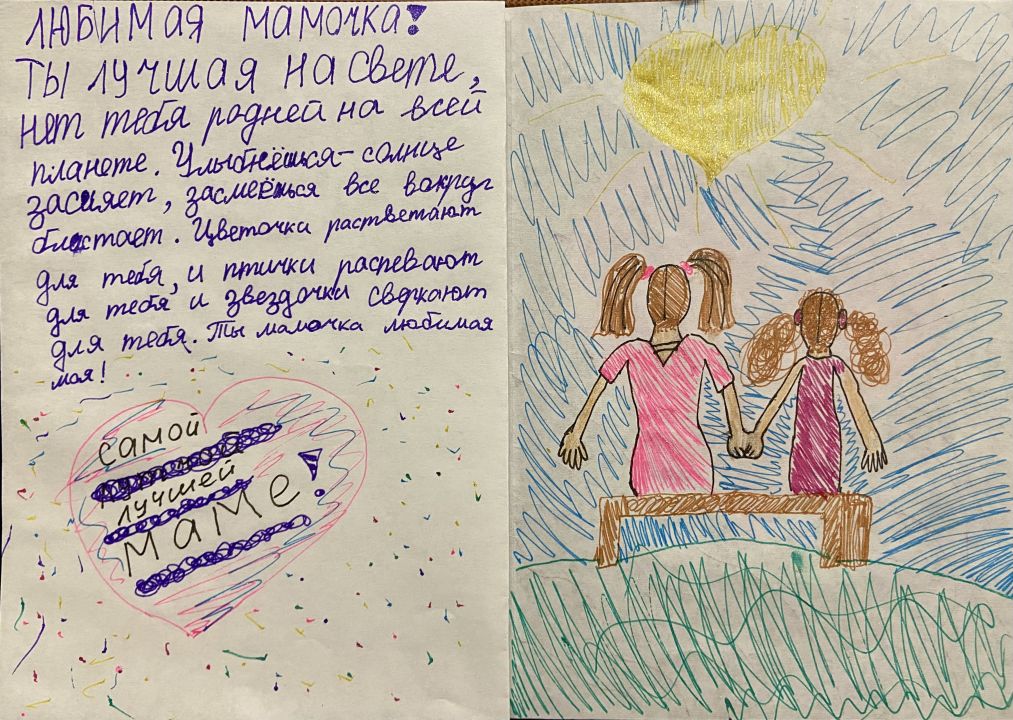 ЛЮБИМАЯ МАМОЧКА!
ТЫ ЛУЧШАЯ НА СВЕТЕ,
нет тебя родней на всей
планете. Улыбнёшься - солнце
засияет, засмеёшься все вокруг
блистает. Цветочки растветают
для тебя, и птички распевают
для тебя и звездочки сверкают
для тебя. Ты мамочка любимая
моя!
САМОЙ
ЛУЧШЕЙ
МАМЕ!